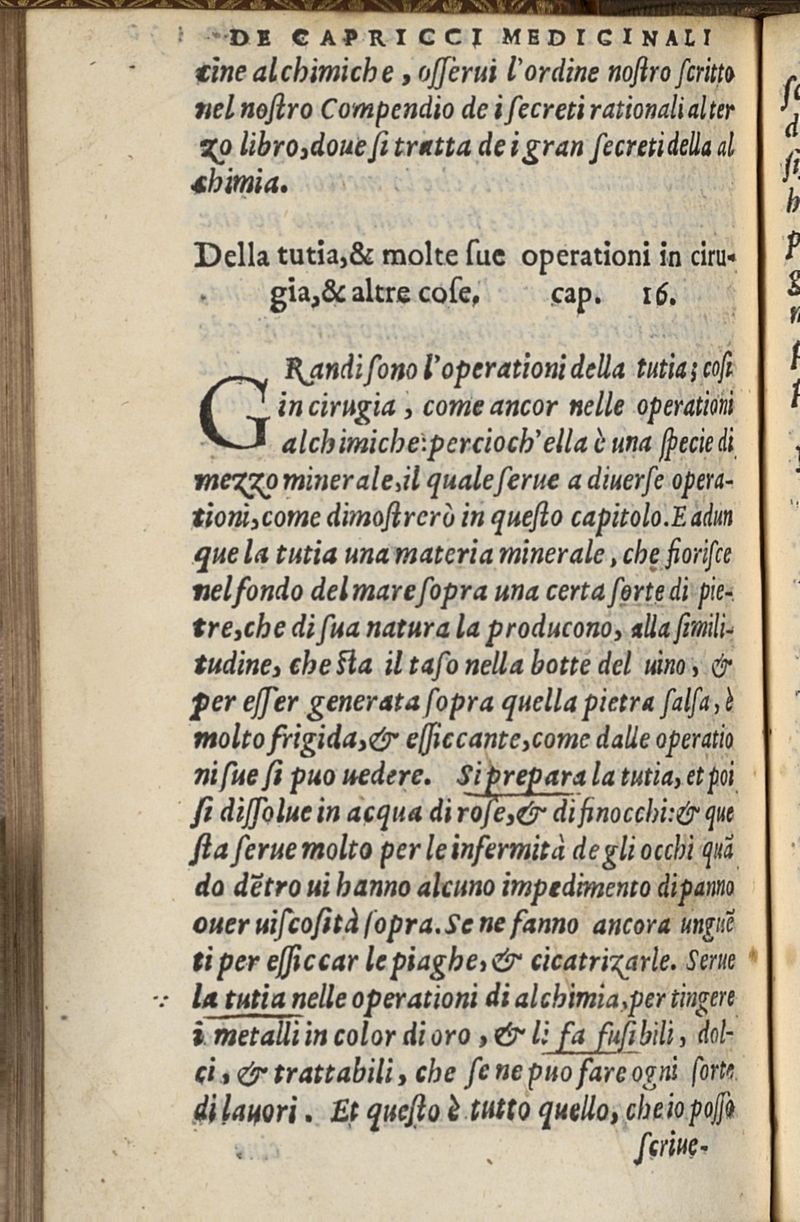 DE CAPRICCI MEDICINALI
cine alchimiche, osserui l'ordine nostro scritto
nel nostro Compendio de i secreti rationali al ter
zo libro, doue si tratta de i gran secreti della al
chimia.
Della tutia, & molte sue operationi in ciru-
gia, & altre cose. cap. 16.
GRandi sono l'operationi della tutia; cosi
in cirugia, come ancor nelle operationi
alchimiche: percioch'ella è una specie di
mezzo minerale, il quale serue a diuerse opera-
tioni, come dimostrerò in questo capitolo. E adun
que la tutia una materia minerale, che fiorisce
nel fondo del mare sopra una certa sorte di pie-
tre, che di sua natura la producono, alla simili-
tudine, che sta il taso nella botte del uino, &
per esser generata sopra quella pietra salsa, è
molto frigida, & essiccante, come dalle operatio
ni sue si puo uedere. Si prepara la tutia, et poi
si dissolue in acqua di rose, & di finocchi: & que
sta serue molto per le infermità de gli occhi quã
do dẽtro ui hanno alcuno impedimento di panno
ouer uiscosità sopra. Se ne fanno ancora unguẽ
ti per essiccar le piaghe, & cicatrizarle. Serue
la tutia nelle operationi di alchimia, per tingere
i metalli in color di oro, & li fa fusibili, dol-
ci, & trattabili, che se ne puo fare ogni sorte
di lauori. Et questo è tutto quello, che io posso
scriue-